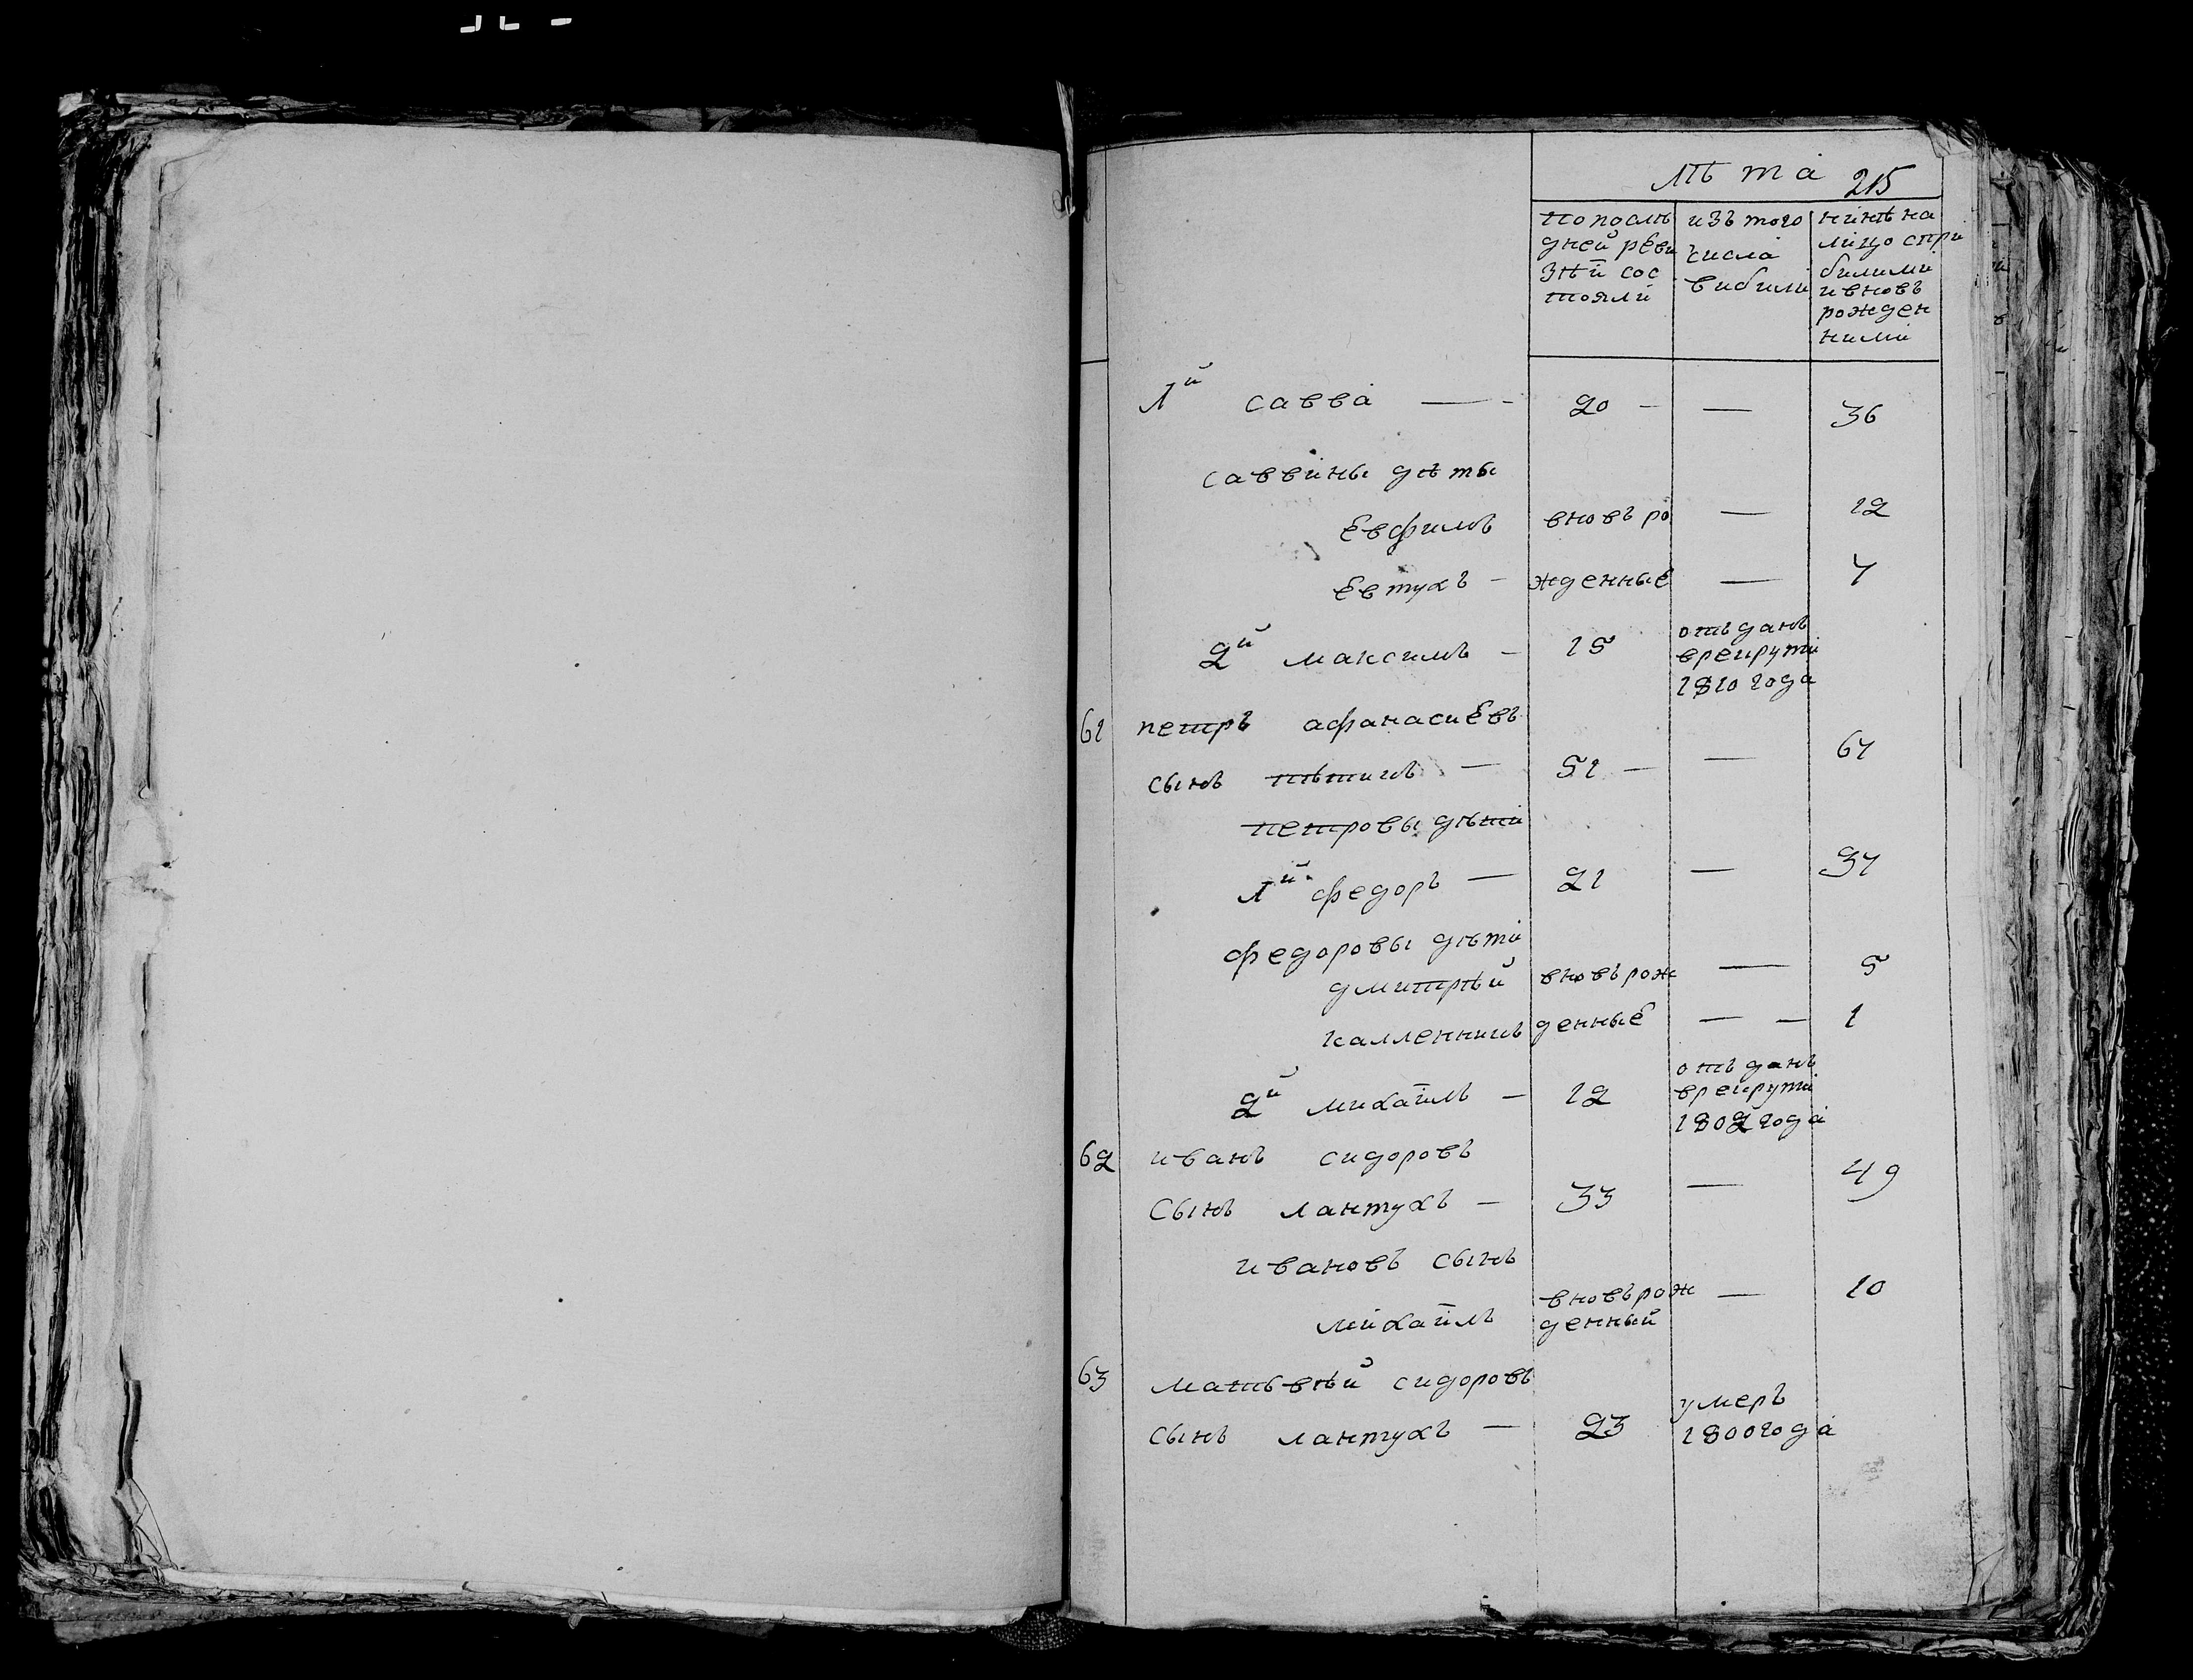 лѣта 215
по послѣ
дней реви
зѣи сос
тояли
изъ того
числа
вибили
нинѣ на
лицо спри
билими
и вновъ
рожден
ними
1й савва — 20 — — 36
саввины дѣты
Евфимъ вновъ ро — 12
Евтухъ — жденные — 7
2й максимъ — 15 отъданъ
врекрути
1810 года
61 петръ афанасиевъ
сынъ — 51 — — 67
петровы дѣти
1й федоръ — 21 — 37
федоровы дѣти
дмитрѣй вновъ рож — 5
калленникъ денные — — 1
2й михаилъ — 12 отъданъ
врекрути
1802 года
62 иванъ сидоровъ
сынъ лантухъ — 33 — 49
ивановъ сынъ
михаилъ вновъ рож
денный — 10
63 матьвѣй сидоровъ
сынъ лантухъ — 23 умеръ
1800 года